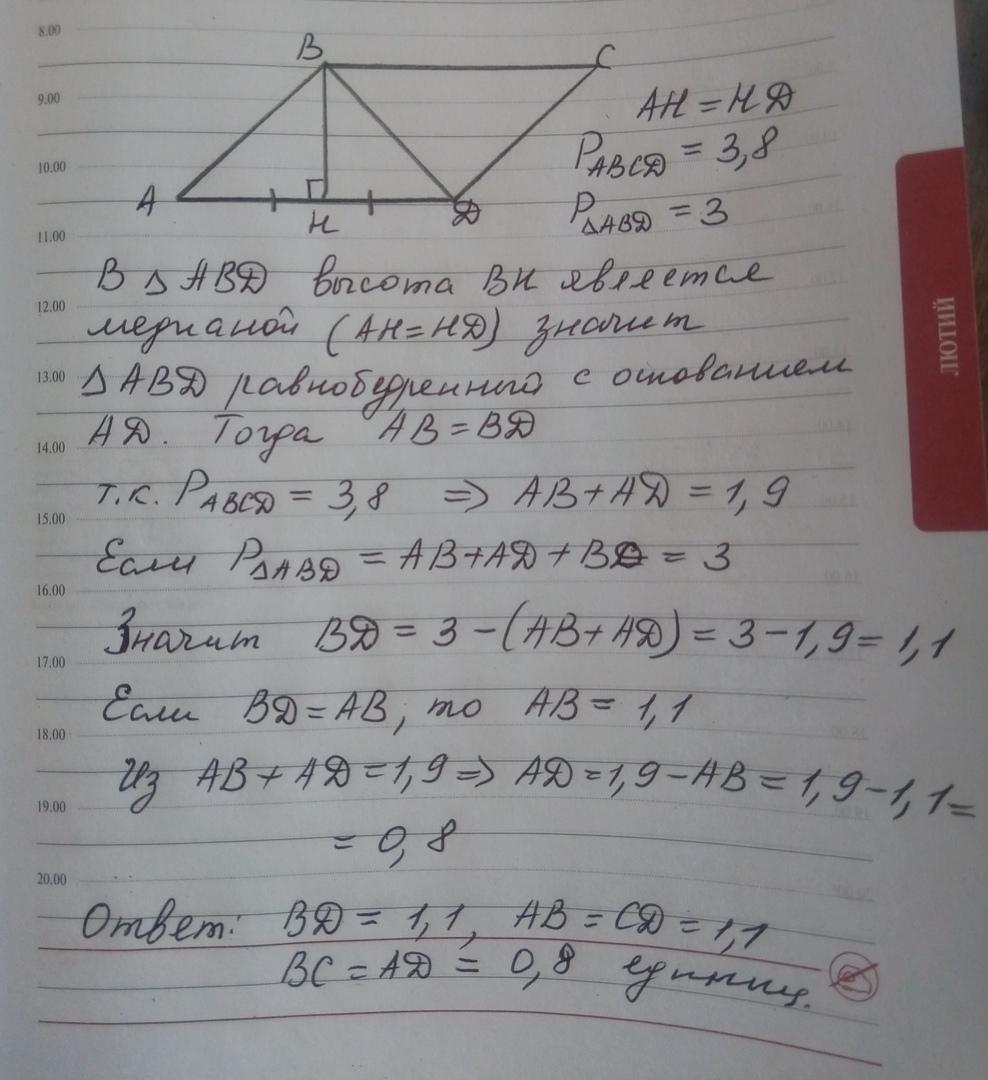 8.00
B
C
9.00
AH = HD
10.00
P ABCD = 3,8
A
H
D
P ΔABD = 3
11.00
В Δ ABD высота BH является
12.00
медианой (AH=HD) значит
13.00
Δ ABD равнобедренный с основанием
AD. Тогда AB = BD
14.00
т.к. P ABCD = 3,8 => AB + AD = 1,9
15.00
Если P ΔABD = AB + AD + BD = 3
16.00
Значит BD = 3 - (AB + AD) = 3 - 1,9 = 1,1
17.00
Если BD = AB, то AB = 1,1
18.00
Из AB + AD = 1,9 => AD = 1,9 - AB = 1,9 - 1,1 =
19.00
= 0,8
20.00
Ответ: BD = 1,1, AB = CD = 1,1
BC = AD = 0,8 единиц.
ЛЮТИЙ